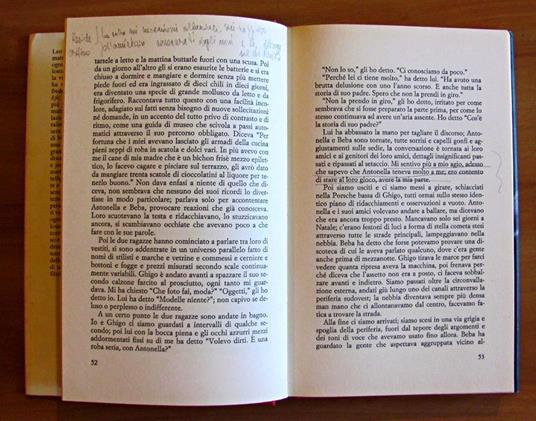 tarsele a letto e la mattina buttarle fuori con una scusa. Poi
da un giorno all'altro gli si erano esaurite le batterie e si era
chiuso a dormire e mangiare e dormire senza più mettere
piede fuori ed era ingrassato di dieci chili in dieci giorni,
era diventato una specie di grande mollusco da letto e da
frigorifero. Raccontava tutto questo con una facilità incol-
lore, adagiato sui fatti senza bisogno di nuove sollecitazioni
né domande, in un accento del tutto privo di contrasto e di
ritmo, come una guida di museo che scivola a passi auto-
matici attraverso il suo percorso obbligato. Diceva "Per
fortuna che i miei avevano lasciato gli armadi della cucina
pieni zeppi di roba in scatola e dolci vari. In più avevo con
me il cane di mia madre che è un bichon frisé mezzo epilet-
tico, lo facevo cagare e pisciare sul terrazzo, gli avrò dato
da mangiare trenta scatole di cioccolatini al liquore per te-
nerlo buono." Non dava enfasi a niente di quello che di-
ceva, non sembrava che nessuno dei suoi ricordi lo diver-
tisse in modo particolare; parlava solo per accontentare
Antonella e Beba, provocare reazioni che già conosceva.
Loro scuotevano la testa e ridacchiavano, lo stuzzicavano
ancora, si scambiavano occhiate che avevano poco a che
fare con le sue parole.
Poi le due ragazze hanno cominciato a parlare tra loro di
vestiti, si sono addentrate in un universo parallelo fatto di
nomi di stilisti e marche e vetrine e commesse e cerniere e
bottoni e fogge e prezzi misurati secondo scale continua-
mente variabili. Ghigo è andato avanti a spazzare il suo
secondo calzone farcito al prosciutto, ogni tanto mi guar-
dava. Mi ha chiesto "Che foto fai, moda?" "Oggetti," gli ho
detto io. Lui ha detto "Modelle niente?"; non capivo se de-
luso o perplesso o indifferente.
A un certo punto le due ragazze sono andate in bagno.
Io e Ghigo ci siamo guardati a intervalli di qualche se-
condo; poi lui con la bocca piena e gli occhi azzurri mezzi
addormentati fissi su di me ha detto "Volevo dirti. È una
roba seria, con Antonella?"
52
"Non lo so," gli ho detto. "Ci conosciamo da poco."
"Perché lei ci tiene molto," ha detto lui. "Ha avuto una
brutta delusione con uno l'anno scorso. E anche tutta la
storia di suo padre. Spero che non la prendi in giro."
"Non la prendo in giro," gli ho detto, irritato per come
sembrava che si fosse preparato la parte prima, per come lo
stesso continuava ad avere un'aria assente. Ho detto "Cos'è
la storia di suo padre?"
Lui ha abbassato la mano per tagliare il discorso; Anto-
nella e Beba sono tornate, tutte sorrisi e capelli gonfi e ag-
giustamenti sulle sedie, la conversazione è tornata ai loro
amici e ai genitori dei loro amici, dettagli insignificanti pas-
sati e ripassati al setaccio. Mi sentivo più a mio agio, adesso
che sapevo che Antonella teneva molto a me; ero contento
di stare al loro gioco, avere la mia parte.
Poi siamo usciti e ci siamo messi a girare, schiacciati
nella Porsche bassa di Ghigo, tutti ormai sullo stesso identi-
co piano di ridacchiamenti e osservazioni a vuoto. Antonel-
la e i suoi amici volevano andare a ballare, ma dicevano che
era ancora troppo presto. Mancavano solo sei giorni a
Natale; c'erano festoni di luci a forma di stella cometa tesi
attraverso tutte le strade principali, lampeggiavano nella
nebbia. Beba ha detto che potevamo provare una disco-
teca di cui aveva parlato qualcuno, dove c'era gente
anche prima di mezzanotte. Ghigo tirava le marce per farci
vedere quanta ripresa aveva la macchina, poi frenava per-
ché diceva che l'assetto non era a posto, ci faceva sobbal-
zare avanti e indietro. Siamo passati oltre la circonvalla-
zione esterna, andati giù lungo uno dei canali attraverso la
periferia sudovest; la nebbia diventava sempre più densa
man mano che ci allontanavamo dal centro, facevamo fati-
ca a trovare la strada.
Alla fine ci siamo arrivati; siamo scesi in una via grigia e
spoglia della periferia, fuori dal tepore degli argomenti e
dei toni di voce che avevamo usato fino allora. Beba ha
guardato la gente che aspettava aggruppata vicino al-
53